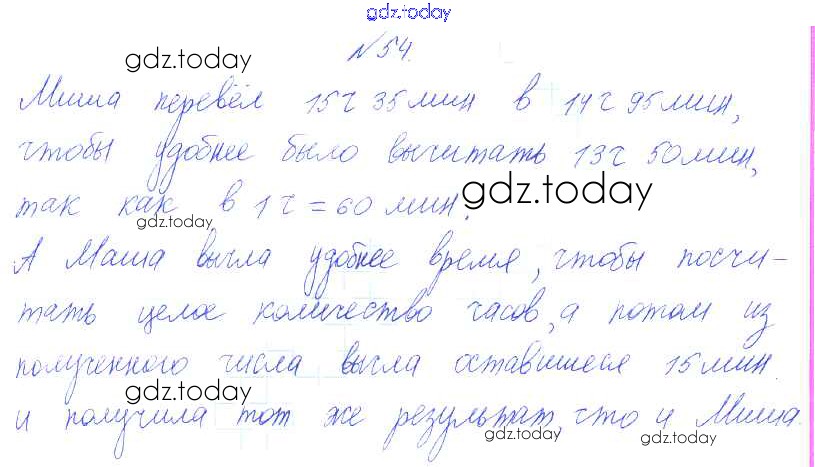 gdz.today
№54.
gdz.today
Миша перевёл 15ч 35мин в 14ч 95мин,
чтобы удобнее было вычитать 13ч 50мин,
так как в 1ч = 60 мин.
gdz.today
gdz.today
А Маша вычла удобнее время, чтобы посчи-
тать целое количество часов, а потом из
полученного числа вычла оставшиеся 15 мин.
gdz.today
и получила тот же результат, что и Миша.
gdz.today
gdz.today